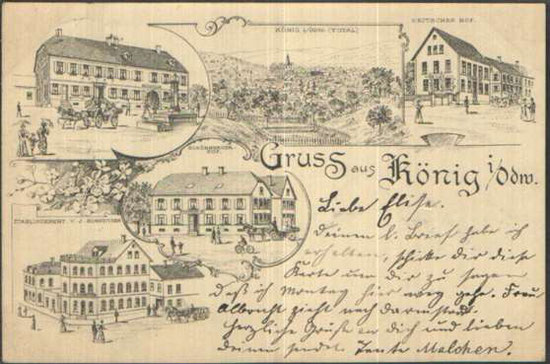 KÖNIG i/ODW. (TOTAL)
GASTHOF.
Gruss aus König i/Odw.
ETABLISSEMENT V. J.
Liebe Elise.
Deinen l. Brief habe ich
erhalten, schicke dir diese
Karte um dir zu sagen
daß ich Montag hier weg gehe. Frau
Albrecht zieht nach Darmstadt.
Herzliche Grüße an dich und lieben
deinen sendet Tante Malchen